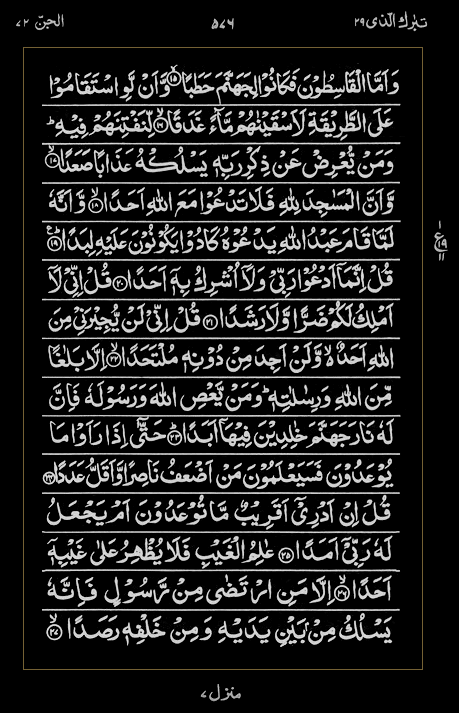 تبٰرك الذی ٢٩ ۵۷۶ الجنّ ۷۲
وَاَمَّا الْقَاسِطُوْنَ فَكَانُوْا لِجَهَنَّمَ حَطَبًا ۙ﴿۱۵﴾ وَّاَنْ لَّوِ اسْتَقَامُوْا
عَلَى الطَّرِيْقَةِ لَاَسْقَيْنٰهُمْ مَّآءً غَدَقًا ۙ﴿۱۶﴾ لِّنَفْتِنَهُمْ فِيْهِ ؕ
وَمَنْ يُّعْرِضْ عَنْ ذِكْرِ رَبِّهٖ يَسْلُكْهُ عَذَابًا صَعَدًا ۙ﴿۱۷﴾
وَّاَنَّ الْمَسٰجِدَ لِلّٰهِ فَلَا تَدْعُوْا مَعَ اللّٰهِ اَحَدًا ۙ﴿۱۸﴾ وَّاَنَّهٗ
لَمَّا قَامَ عَبْدُ اللّٰهِ يَدْعُوْهُ كَادُوْا يَكُوْنُوْنَ عَلَيْهِ لِبَدًا ؕ﴿۱۹﴾
۱ ع ۱۹ ۱۱
قُلْ اِنَّمَاۤ اَدْعُوْا رَبِّىْ وَلَاۤ اُشْرِكُ بِهٖۤ اَحَدًا ﴿۲۰﴾ قُلْ اِنِّىْ لَاۤ
اَمْلِكُ لَكُمْ ضَرًّا وَّلَا رَشَدًا ﴿۲۱﴾ قُلْ اِنِّىْ لَنْ يُّجِيْرَنِىْ مِنَ
اللّٰهِ اَحَدٌ ۙ وَّلَنْ اَجِدَ مِنْ دُوْنِهٖ مُلْتَحَدًا ۙ﴿۲۲﴾ اِلَّا بَلٰغًا
مِّنَ اللّٰهِ وَرِسٰلٰتِهٖ ؕ وَمَنْ يَّعْصِ اللّٰهَ وَرَسُوْلَهٗ فَاِنَّ
لَهٗ نَارَ جَهَنَّمَ خٰلِدِيْنَ فِيْهَاۤ اَبَدًا ؕ﴿۲۳﴾ حَتّٰٓى اِذَا رَاَوْا مَا
يُوْعَدُوْنَ فَسَيَعْلَمُوْنَ مَنْ اَضْعَفُ نَاصِرًا وَّاَقَلُّ عَدَدًا ﴿۲۴﴾
قُلْ اِنْ اَدْرِىْۤ اَقَرِيْبٌ مَّا تُوْعَدُوْنَ اَمْ يَجْعَلُ
لَهٗ رَبِّىْۤ اَمَدًا ﴿۲۵﴾ عٰلِمُ الْغَيْبِ فَلَا يُظْهِرُ عَلٰى غَيْبِهٖۤ
اَحَدًا ۙ﴿۲۶﴾ اِلَّا مَنِ ارْتَضٰى مِنْ رَّسُوْلٍ فَاِنَّهٗ
يَسْلُكُ مِنْۢ بَيْنِ يَدَيْهِ وَمِنْ خَلْفِهٖ رَصَدًا ۙ﴿۲۷﴾
منزل ۷